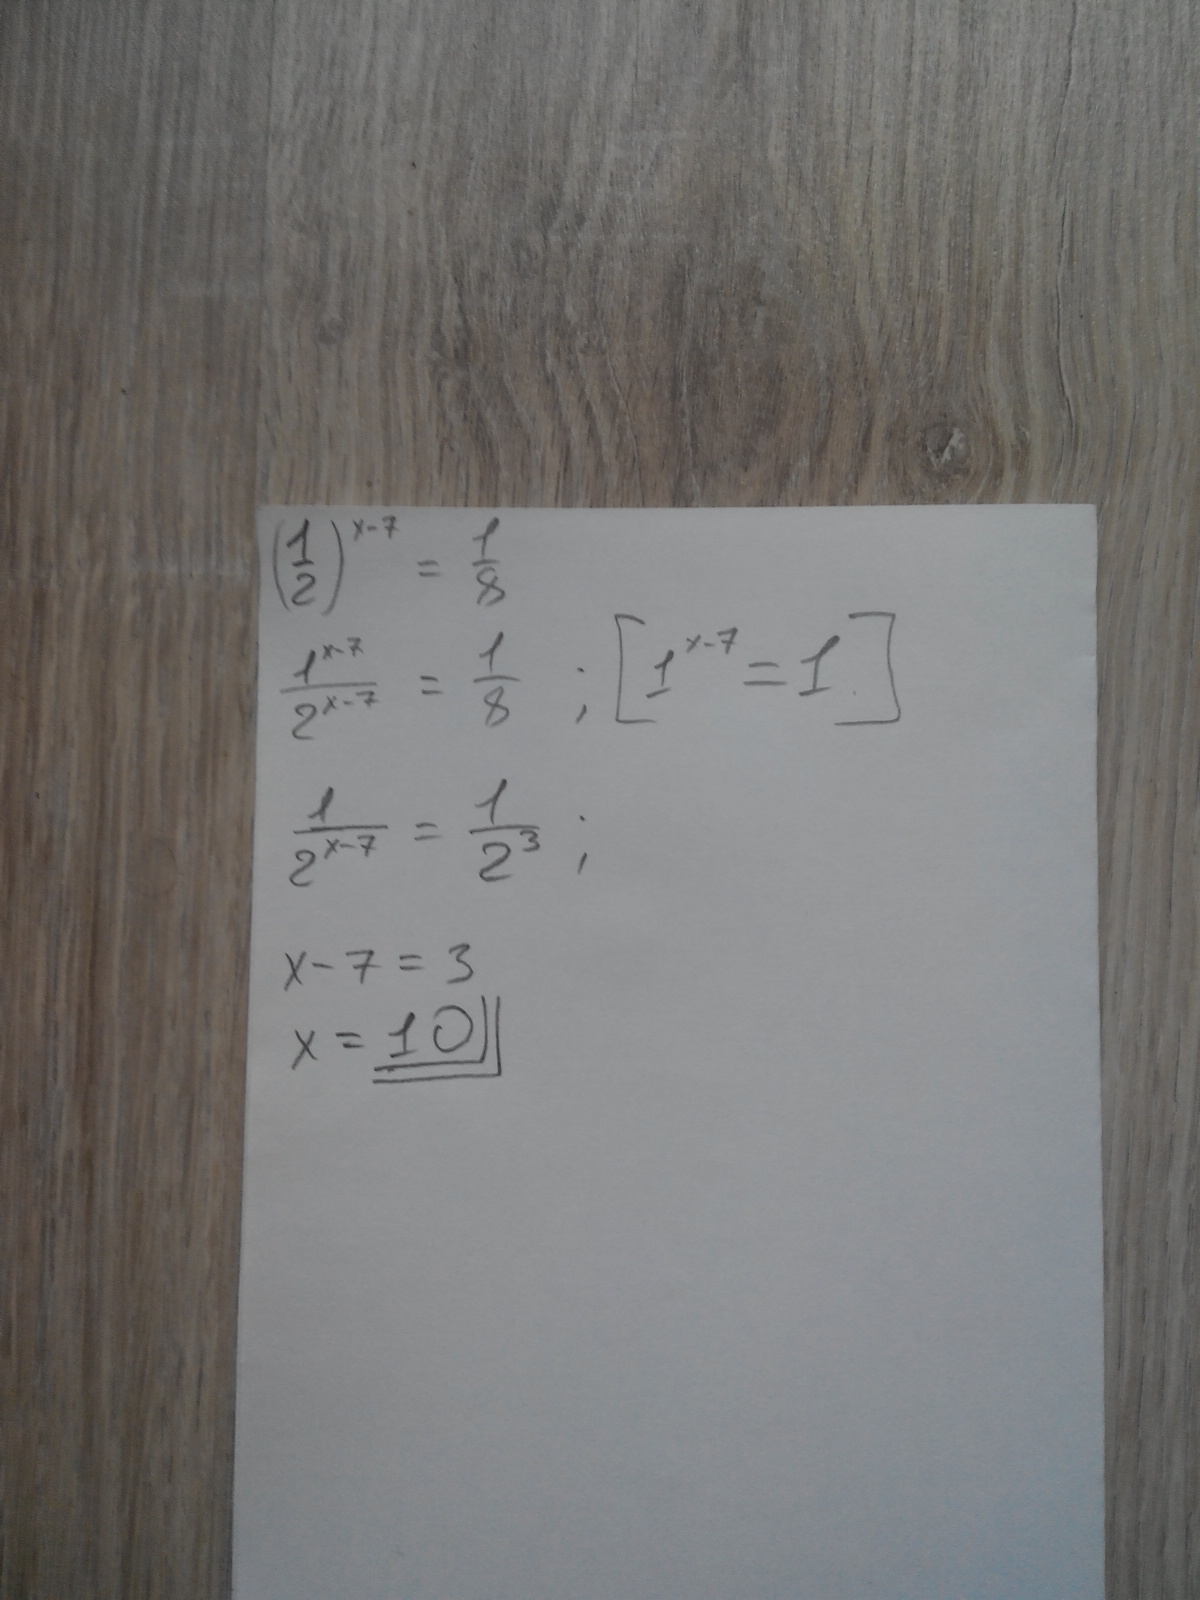 (1/2)^(x-7) = 1/8
1^(x-7)/2^(x-7) = 1/8 ; [1^(x-7) = 1]
1/2^(x-7) = 1/2^3 ;
x-7 = 3
x = 10